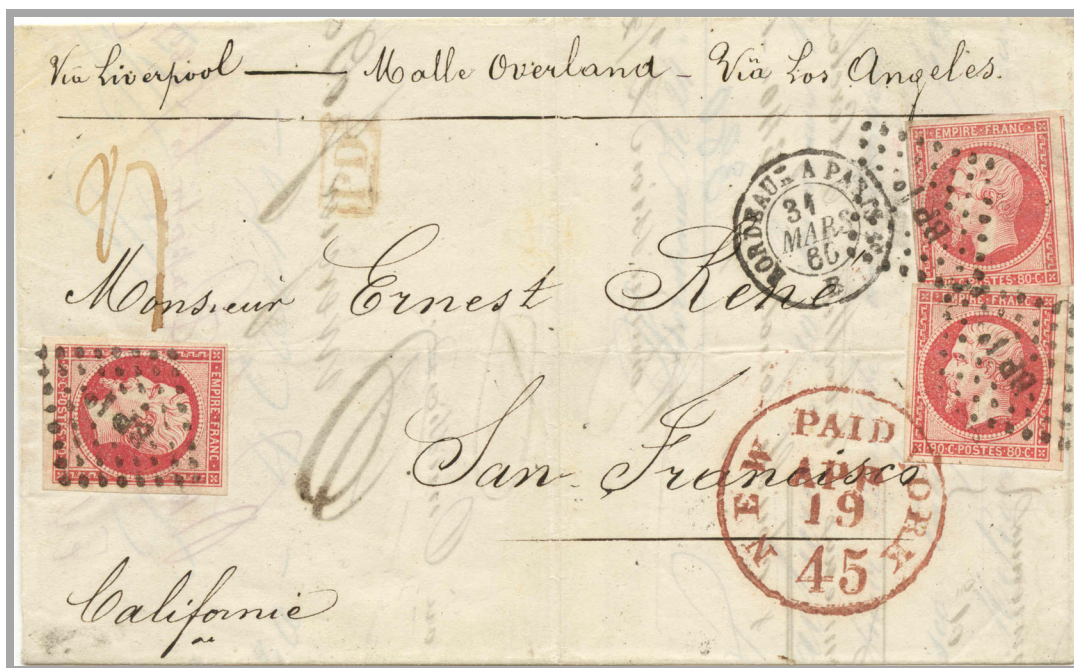 Via Liverpool — Malle Overland - Via Los Angeles.
PD
BORDEAUX A PARIS
31
MARS
60
EMPIRE·FRANC·
POSTES·80·C·
EMPIRE·FRANC·
80·C·POSTES·80·C·
BP1
BP1
Monsieur Ernest René
EMPIRE·FRANC·
C·POSTES
San Francisco
NEW YORK
PAID
APR
19
45
Californie